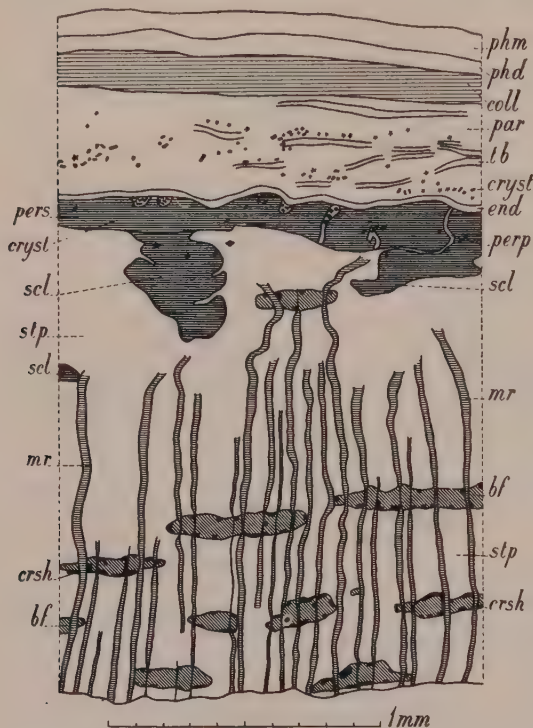 phm
phd
coll
par
tb
cryst
end
perp
scl
mr
bf
stp
crsh
pers
cryst
scl
stp
scl
mr
crsh
bf
1mm